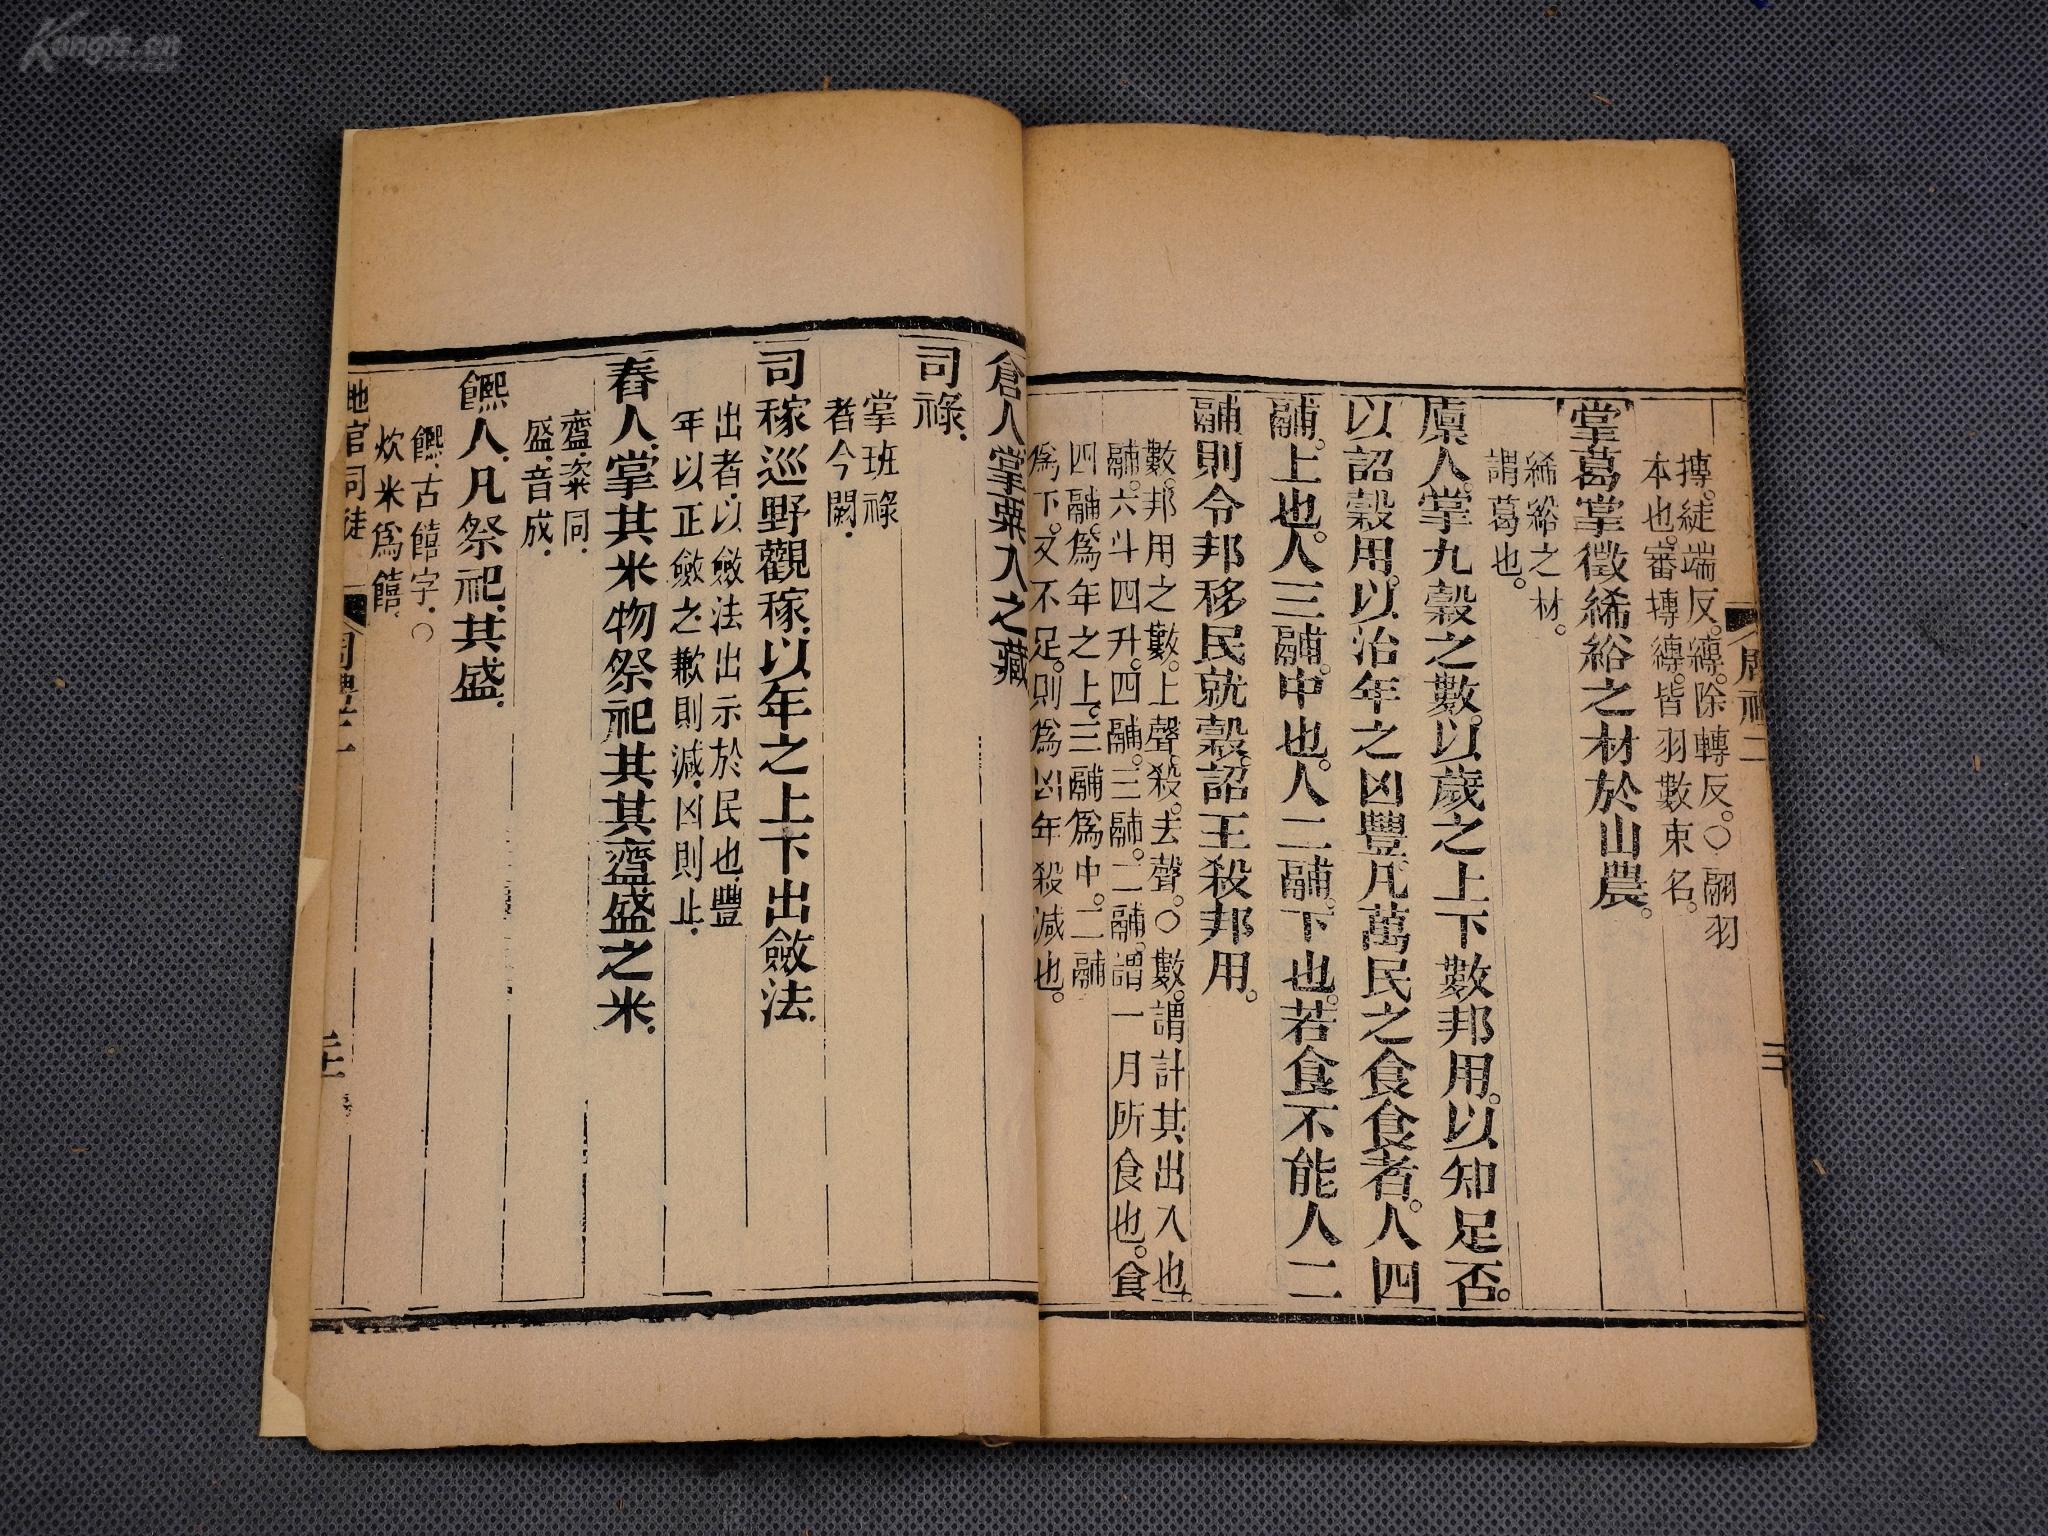 摶。徒端反。縳。除轉反。○翮羽
本也。審摶縳。皆羽數束名。
掌葛掌徵絺綌之材於山農。
絺綌之材。
謂葛也。
廩人。掌九穀之數。以歲之上下數邦用。以知足否。
以詔穀用。以治年之凶豐。凡萬民之食食者。人四
鬴。上也。人三鬴。中也。人二鬴。下也。若食不能人二
鬴。則令邦移民就穀。詔王殺邦用。
數。邦用之數。上聲。殺。去聲。○數。謂計其出入也。
鬴。六斗四升。四鬴。三鬴。二鬴。謂一月所食也。食
四鬴。爲年之上。三鬴爲中。二鬴
爲下。又不足。則爲凶年殺減也。
周禮二
二十
倉人掌粟入之藏
司祿.
掌班祿
者今闕.
司稼巡野觀稼.以年之上下出斂法.
出者.以斂法出示於民也.豐
年以正斂之.歉則減.凶則止.
舂人.掌其米物祭祀其其齍盛之米.
齍.粢同.
盛.音成.
饎人.凡祭祀.共盛.
饎.古饎字.○
炊米爲饎.
地官司徒
周禮二
Kongfz.cn